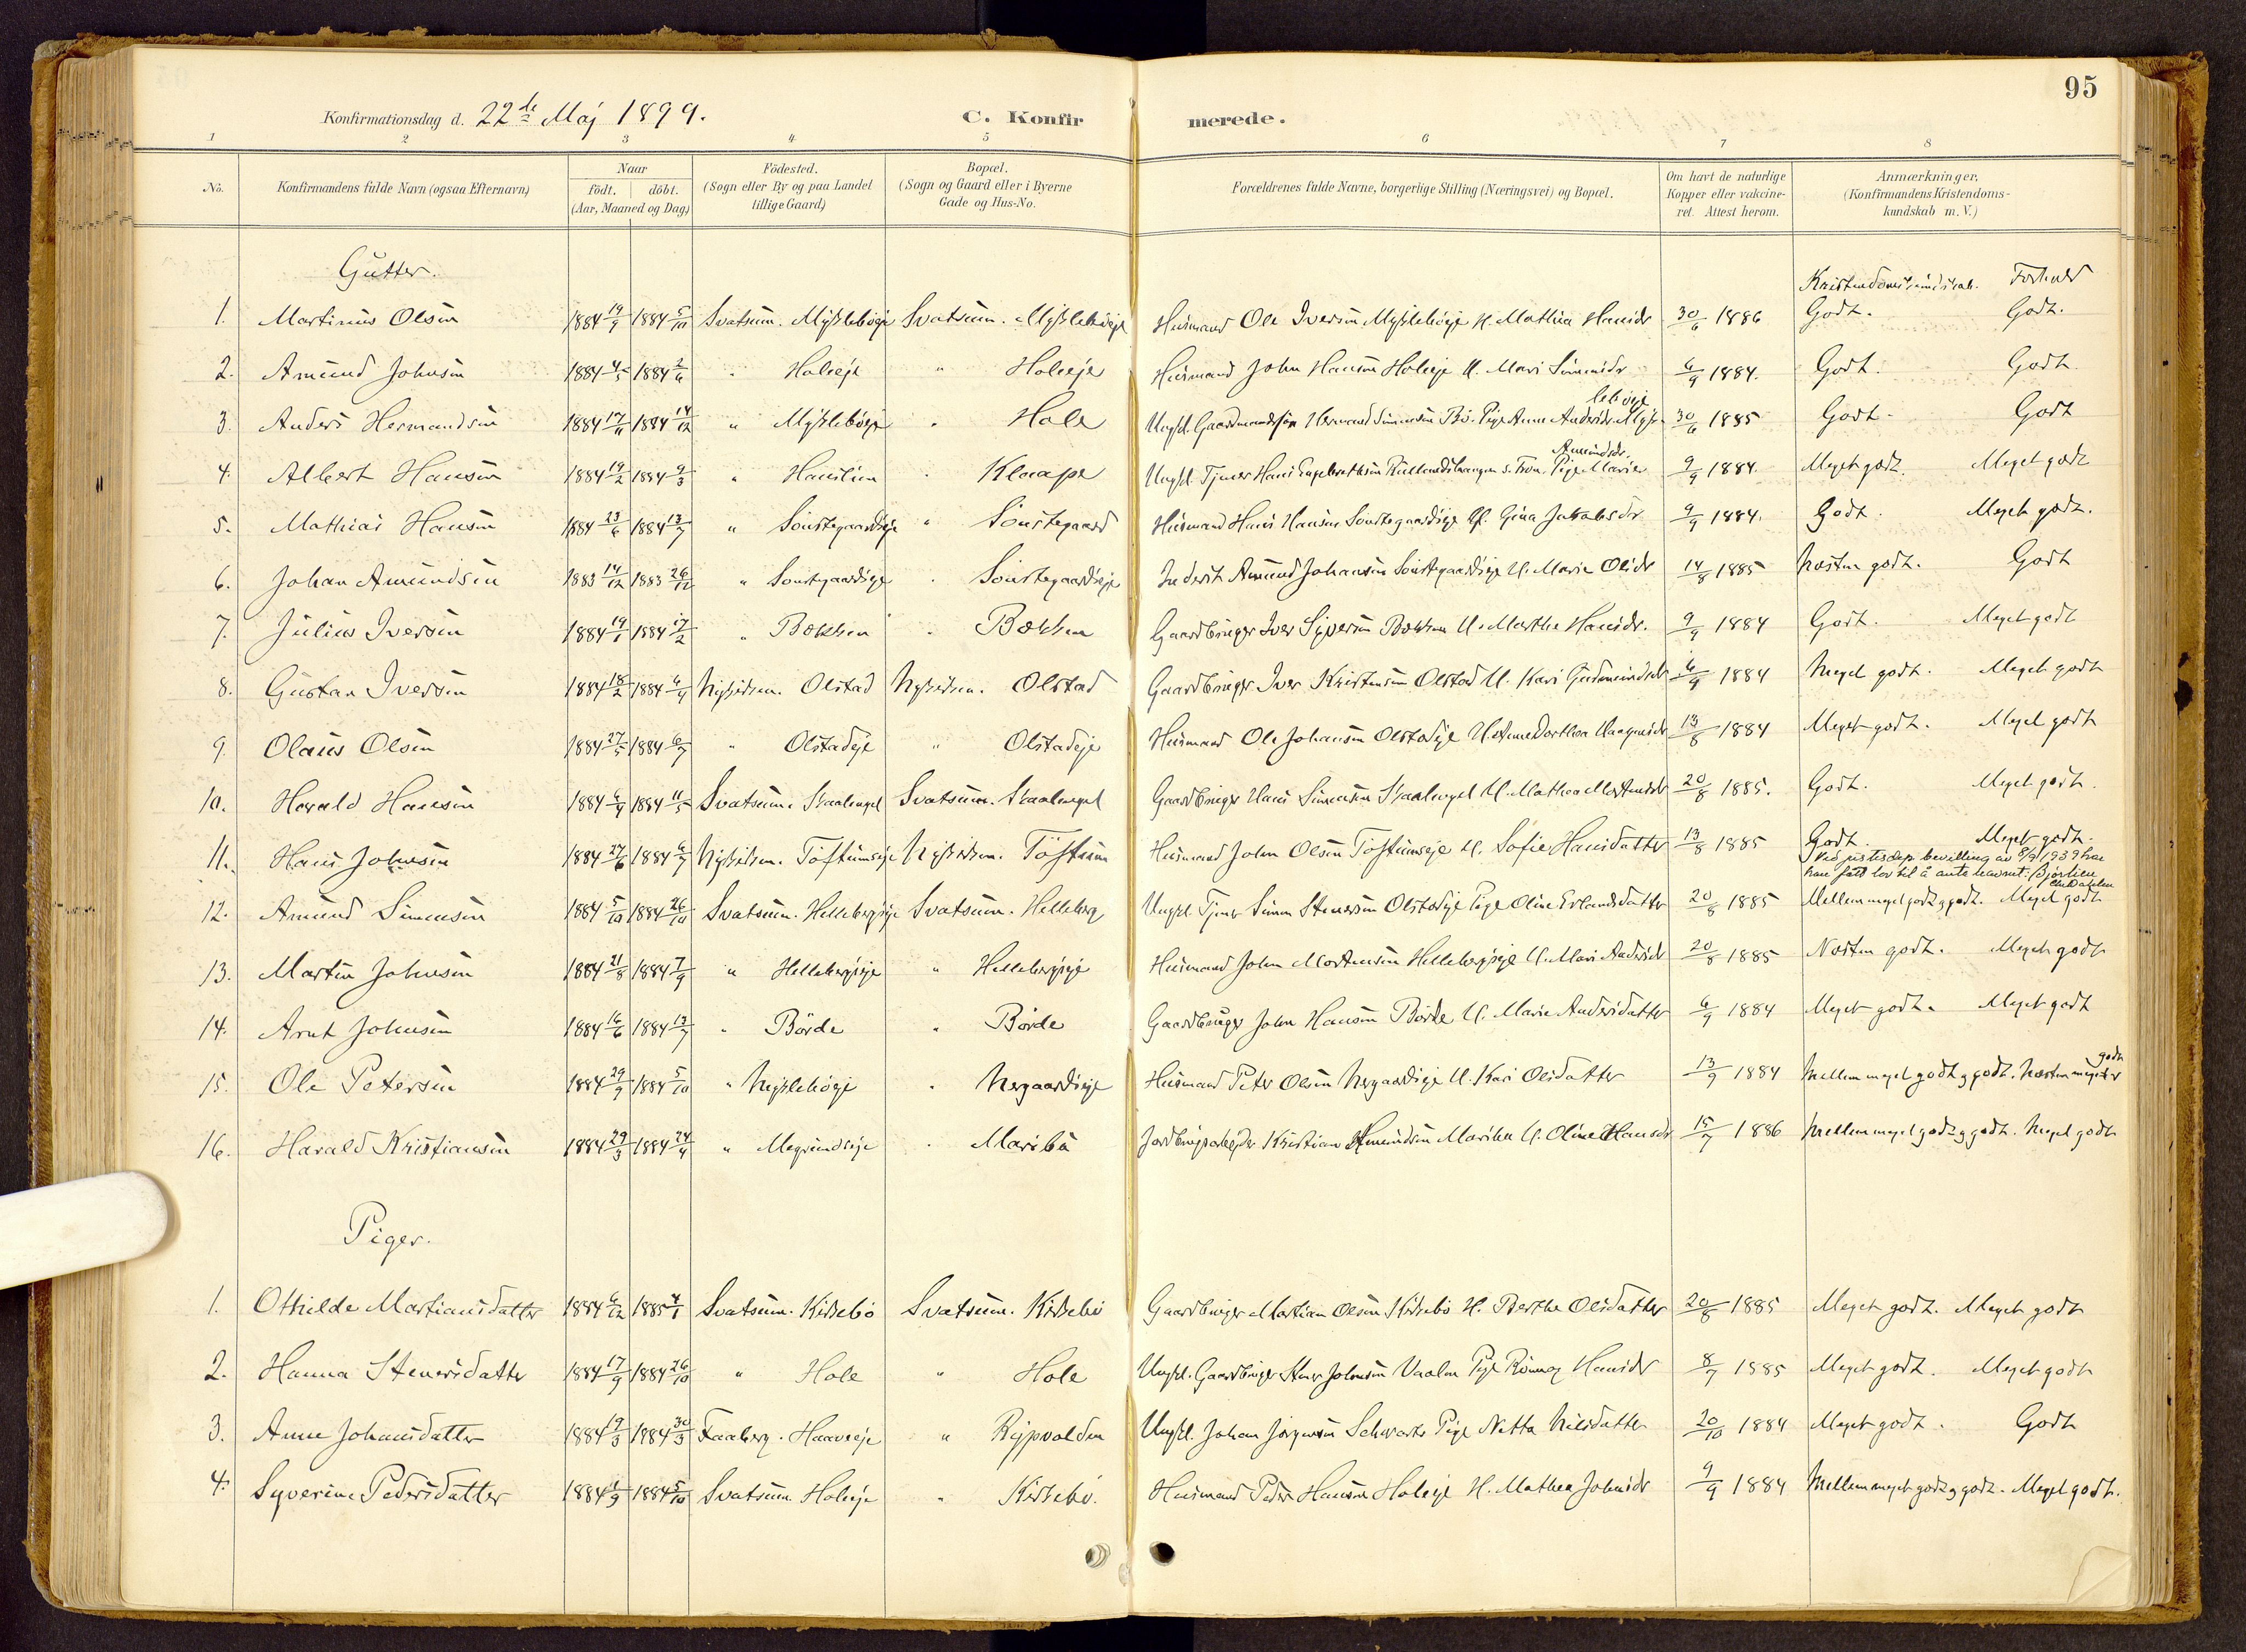 95
Konfirmationsdag d. 22de Maj 1899. C. Konfirmerede.
1 2 3 4 5 6 7 8
No. Konfirmandens fulde Navn (ogsaa Efternavn) Naar födt. döbt. (Aar, Maaned og Dag) Födested. (Sogn eller By og paa Landet tillige Gaard) Bopæl. (Sogn og Gaard eller i Byerne Gade og Hus-No. Forældrenes fulde Navne, borgerlige Stilling (Næringsvei) og Bopæl. Om havt de naturlige Kopper eller vakcineret. Attest herom. Anmærkninger, (Konfirmandens Kristendomskundskab m. V.)
Gutter. Kristendomskundskab. Forhold
1. Martinus Olsen 1884 19/9 1884 5/10 Svatsum. Myslebøeje Svatsum. Myslebøeje Husmand Ole Iversen Myslebøeje H. Mathea Hansdr 30/6 1886 Godt. Godt.
2. Amund Johnsen 1884 4/5 1884 2/6 " Holeeje " Holeeje Husmand John Hansen Holeeje H. Mari Simensdr 6/9 1884. Godt. Godt.
3. Anders Hermandsen 1884 17/11 1884 14/12 " Myslebøeje " Hole Ungkl. Gaardmandssøn Hermand Simensen Bø. Pige Anne Andersdr. Myslebøeje 30/6 1885 Godt. Godt
4. Albert Hansen 1884 19/2 1884 9/3 " Hanslien " Klaape Ungkl. Tjener Hans Engebrethsen s. Fron. Pige Marie Amundsdr. 9/9 1884. Meget godt. Meget godt
5. Mathias Hansen 1884 23/6 1884 13/7 " Sønstegaardseje " Sønstegaard Husmand Hans Hansen Sønstegaardseje H. Gina Jakobsdr 9/9 1884. Godt. Meget godt.
6. Johan Amundsen 1883 14/12 1883 26/12 " Sønstegaardseje " Sønstegaardseje Inderst Amund Johansen Sønstegaardseje H. Marie Olsdr 14/8 1885 Næsten godt. Godt
7. Julius Iversen 1884 19/1 1884 17/2 " Bækken " Bækken Gaardbruger Iver Syversen Bækken H. Marthe Hansdr. 9/9 1884 Godt. Meget godt
8. Gustav Iversen 1884 18/2 1884 6/4 Nysædren. Olstad Nysædren. Olstad Gaardbruger Iver Kristensen Olstad H. Kari Gudmundsdr 6/9 1884 Meget godt. Meget godt
9. Olaus Olsen 1884 27/5 1884 6/7 " Olstadeje " Olstadeje Husmand Ole Johansen Olstadeje H. Anne Dorthea Haagensdr 13/8 1884 Meget godt. Meget godt
10. Harald Hansen 1884 6/4 1884 11/5 Svatsum. Skaalengel Svatsum. Skaalengel Gaardbruger Hans Simensen Skaalengel H. Mathea Mortensdr 20/8 1885. Godt. Meget godt.
11. Hans Johnsen 1884 27/6 1884 6/7 Nysædren. Töftumseje Nysædren. Töftum Husmand John Olsen Töftumseje H. Sofie Hansdatter 13/8 1885 Godt. Meget godt.
Ved justisdep. bevilling av 8/9 1939 har
han fått lov til å anta navnet: Bjørlien
12. Amund Simensen 1884 5/10 1884 26/10 Svatsum. Hellebergseje Svatsum. Helleberg Ungkl. Tjener Simen Stenersen Olstadeje Pige Oline Erlandsdatter 20/8 1885 Mellem meget godt og godt. Meget godt
13. Martin Johnsen 1884 21/8 1884 7/9 " Hellebergseje " Hellebergseje Husmand John Mortensen Hellebergseje H. Mari Andersdr 20/8 1885 Næsten godt. Meget godt
14. Arnt Johnsen 1884 16/6 1884 13/7 " Börde " Börde Gaardbruger John Hansen Börde H. Marie Andersdatter 6/9 1884 Meget godt. Meget godt
15. Ole Petersen 1884 29/9 1884 5/10 " Myslebøeje " Nergaardseje Husmand Peter Olsen Nergaardseje H. Kari Olsdatter 13/9 1884 Mellem meget godt og godt. Næsten meget godt
16. Harald Kristiansen 1884 29/3 1884 24/4 " Megrundseje " Maribu Jordbrugsarbejder Kristian Amundsen Maribu H. Oline Hansdr 15/7 1886 Mellem meget godt og godt. Meget godt
Piger.
1. Othilde Martiansdatter 1884 6/12 1885 4/1 Svatsum. Kirkebø Svatsum. Kirkebø Gaardbruger Martian Olsen Kirkebø H. Berthe Olsdatter 20/8 1885 Meget godt. Meget godt
2. Hanna Stenersdatter 1884 17/9 1884 26/10 " Hole " Hole Ungkl. Gaardbruger Stener Johnsen Vaalen Pige Rönnog Hansdr 8/7 1885 Meget godt. Meget godt
3. Anne Johansdatter 1884 19/3 1884 30/3 Faaberg. Haaveeje " Rypvolden Ungkl. Johan Jörgensen Schwartz Pige Netta Nilsdatter 20/10 1884 Meget godt. Godt
4. Syverine Pedersdatter 1884 1/9 1884 5/10 Svatsum. Holeeje " Kirkebø. Husmand Peder Hansen Holeeje H. Mathea Johnsdr 9/9 1884 Mellem meget godt og godt. Meget godt.